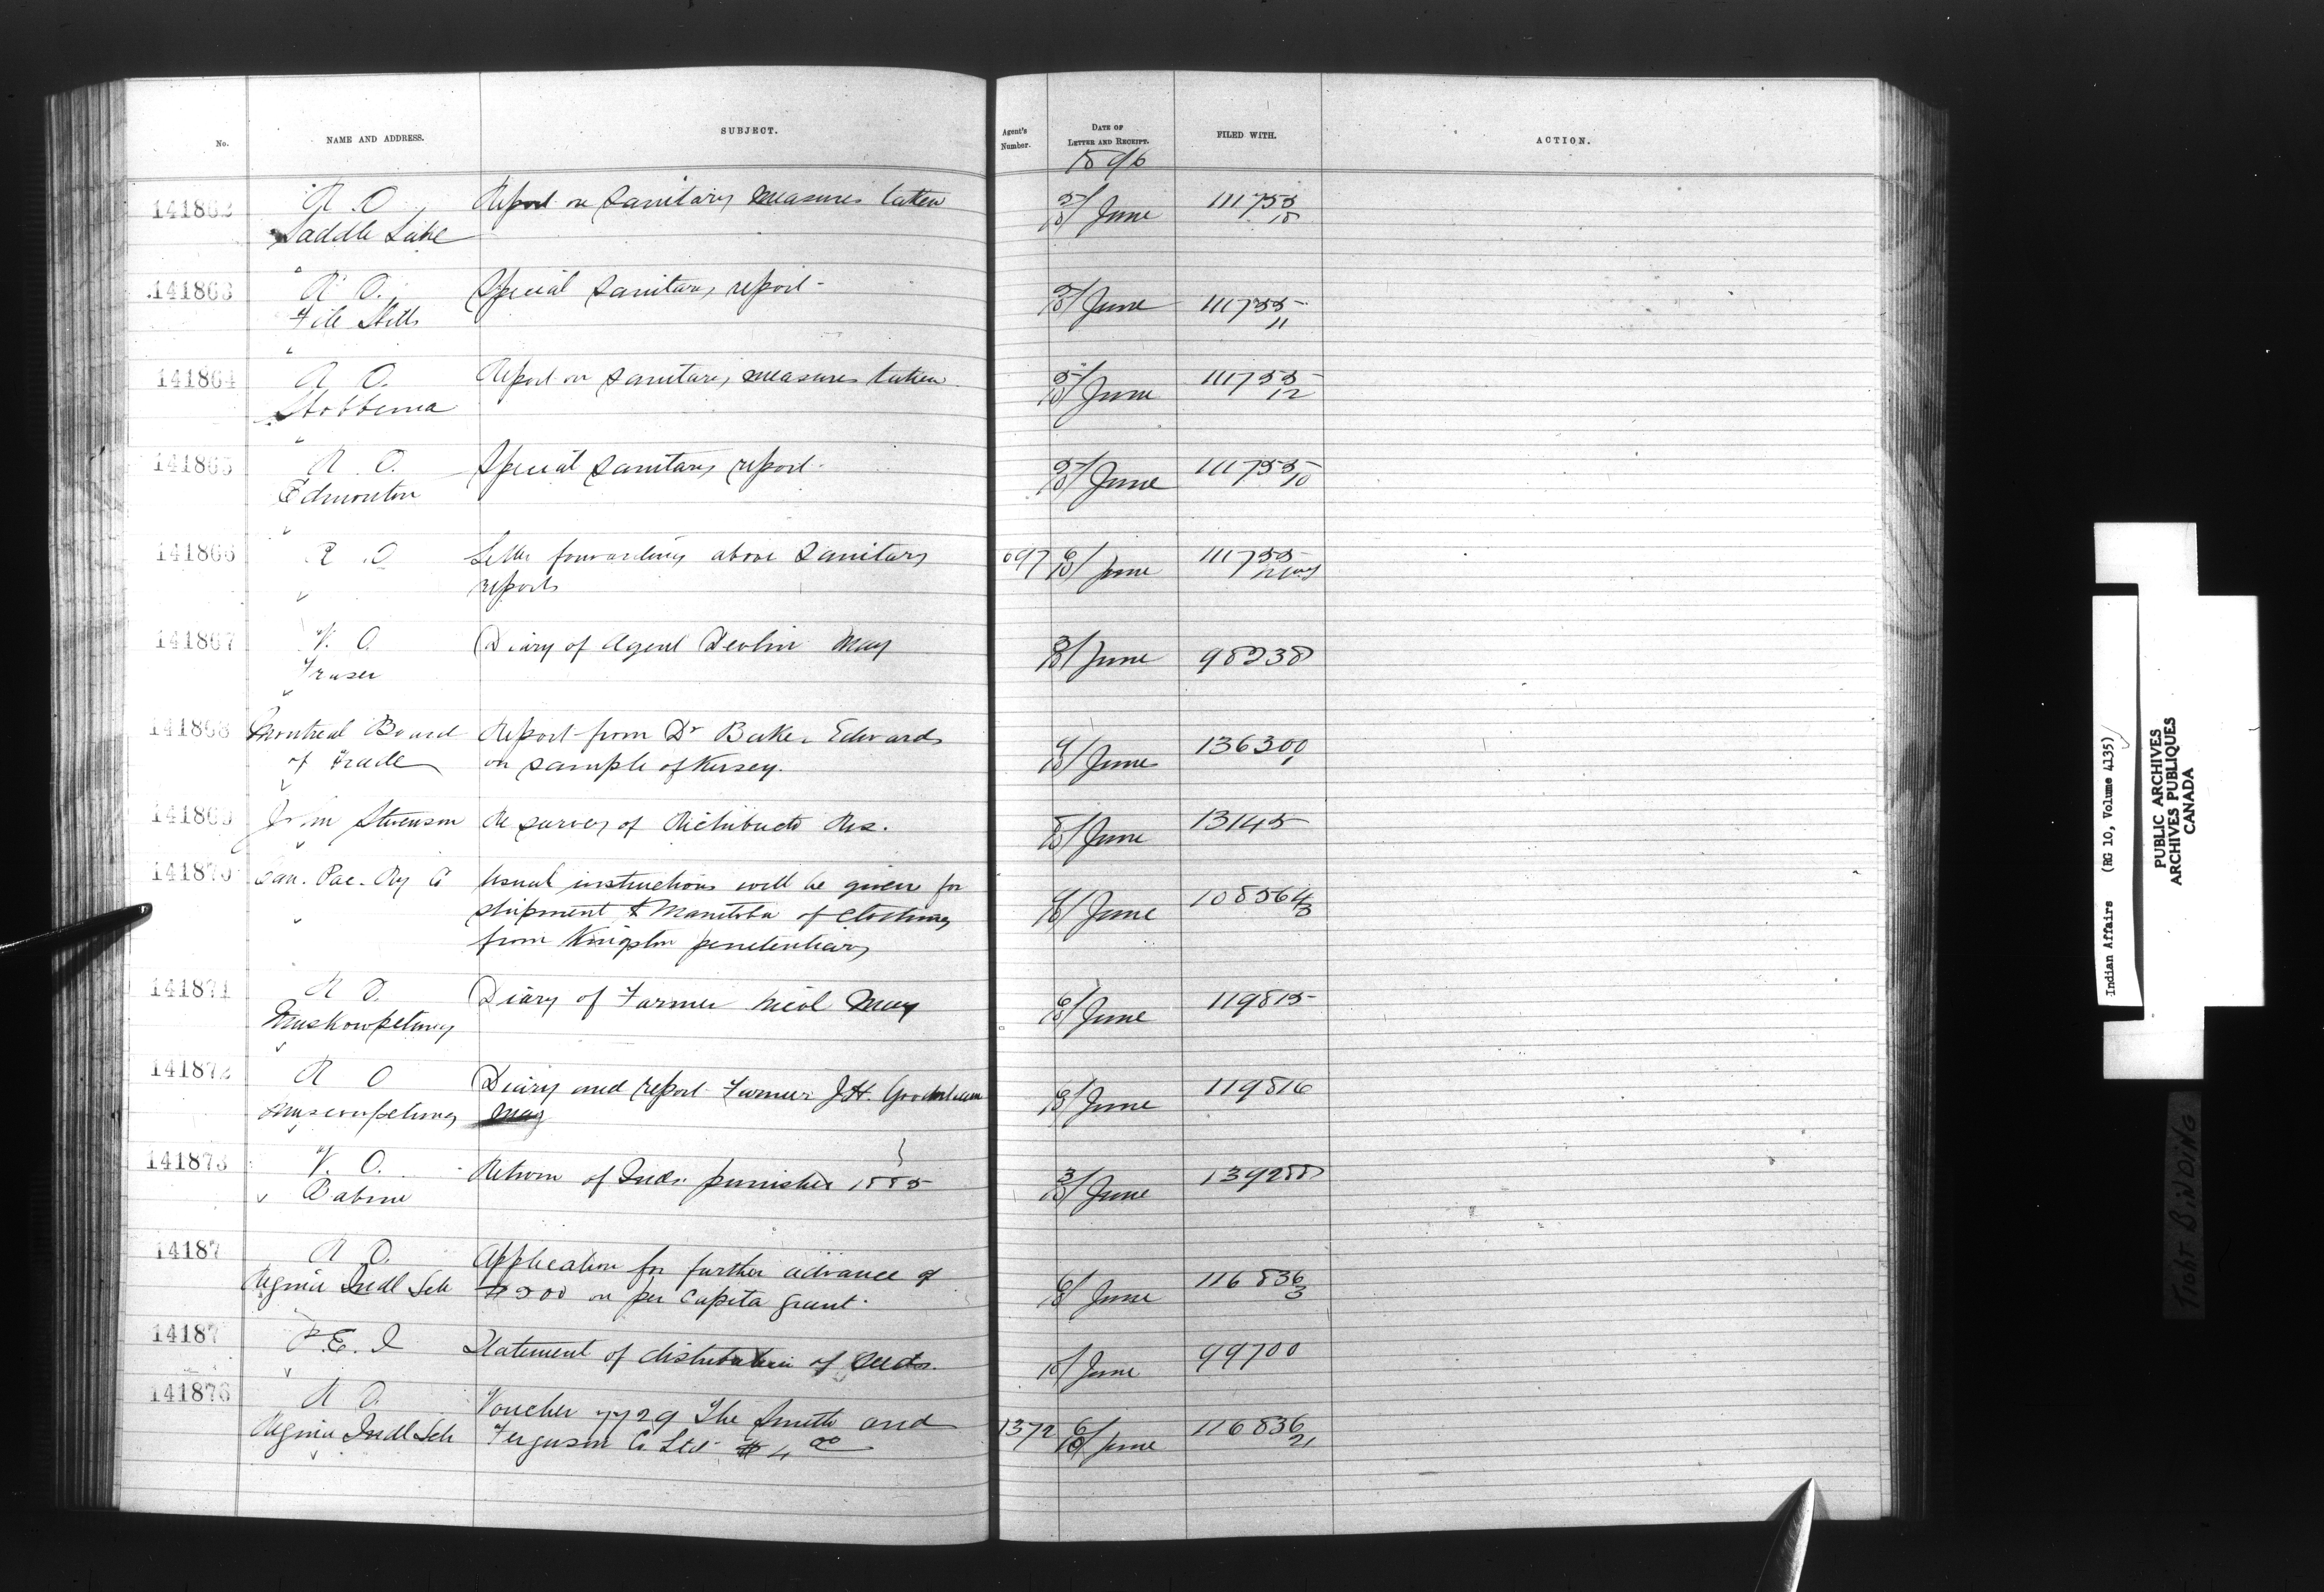 No.
NAME AND ADDRESS.
SUBJECT.
Agent's Number.
DATE OF LETTER AND RECEIPT.
FILED WITH.
ACTION.
1896
141862 R. O. Report on sanitary measures taken 5/10 June 111755
Saddle Lake
141863 R. O. Special sanitary report - 5/10 June 111755
File Hills 11
141864 R. O. Report on sanitary measures taken 5/10 June 111755
Hobbema 12
141865 R. O. Special sanitary report - 5/10 June 111755
Edmonton 10
141866 R. O. Letter forwarding above sanitary 097 6/10 June 111755
reports
141867 V. O. Diary of Agent Devlin May 3/10 June 98238
Fraser
141868 Montreal Board Report from Dr Baker Edwards 9/10 June 136300
of Trade on sample of Kersey. 1
141869 John Stevenson Re survey of Richibucto Res. 8/10 June 13145
141870 Can. Pac. Ry Co Usual instructions will be given for 9/10 June 108564
shipment to Manitoba of clothing 3
from Kingston penitentiary
141871 R. O. Diary of Farmer Nicol May 6/10 June 119815
Muskowpetung
141872 R. O. Diary and report Farmer J.H. 6/10 June 119816
Muscowpetung May
141873 V. O. Return of Inds. punished 1885 3/10 June 139288
Babine
14187 R. O. Application for further advance of 6/10 June 116836
Regina Indl Sch $500 on per capita grant. 3
14187 P. E. I Statement of distribution of seeds. 10/ June 99700
141876 R. O. Voucher 7729 The Smith and 1372 6/10 June 116836
Regina Indl Sch Ferguson Co Ltd $4 00 21
Indian Affairs (RG 10, Volume 4135)
PUBLIC ARCHIVES
ARCHIVES PUBLIQUES
CANADA
TIGHT BINDING